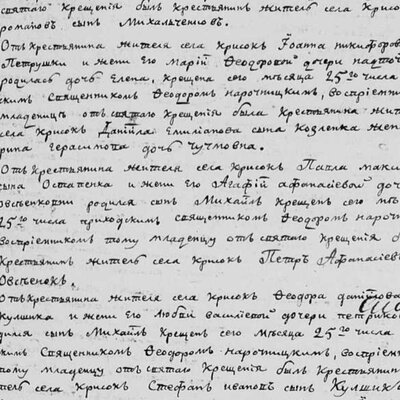 святаго крещения былъ крестьянинъ житель села крисо
романовъ сынъ Михальченковъ.
Отъ крестьянина жителя села крисокъ Іоанна никифоров
Петрушки и жени его Маріи Феодоровой дочери
родилась дочь Елена, крещена сего мѣсяца 25го числа
скимъ священникомъ Феодоромъ нарочницкимъ, воспріемн
младенцу отъ святаго крещенія была крестьянина жител
села крисокъ Даніила Емиліанова сына козленка жена
рина герасимова дочь чучмовна.
Отъ крестьянина жителя села крисокъ Павла макси
сына Остапенка и жени его Агафіи афанасіевой доч
овсѣенковни родился сынъ Михаилъ крещенъ сего мѣ
25го числа приходскимъ священникомъ Феодоромъ нароч
воспріемникомъ тому младенцу отъ святаго крещенія б
крестьянинъ житель села крисокъ Петръ Афанасіевъ
Овсѣенокъ.
Отъ крестьянина жителя села крисокъ Феодора даниилова
кулшика и жени его Любви василіевой дочери петриков
дился сынъ Михаилъ крещенъ сего мѣсяца 25го числа
скимъ священникомъ Феодоромъ нарочницкимъ, воспріемн
тому младенцу отъ святаго крещенія былъ крестьянинъ
тель села крисокъ Стефанъ ивановъ сынъ Кулшикъ